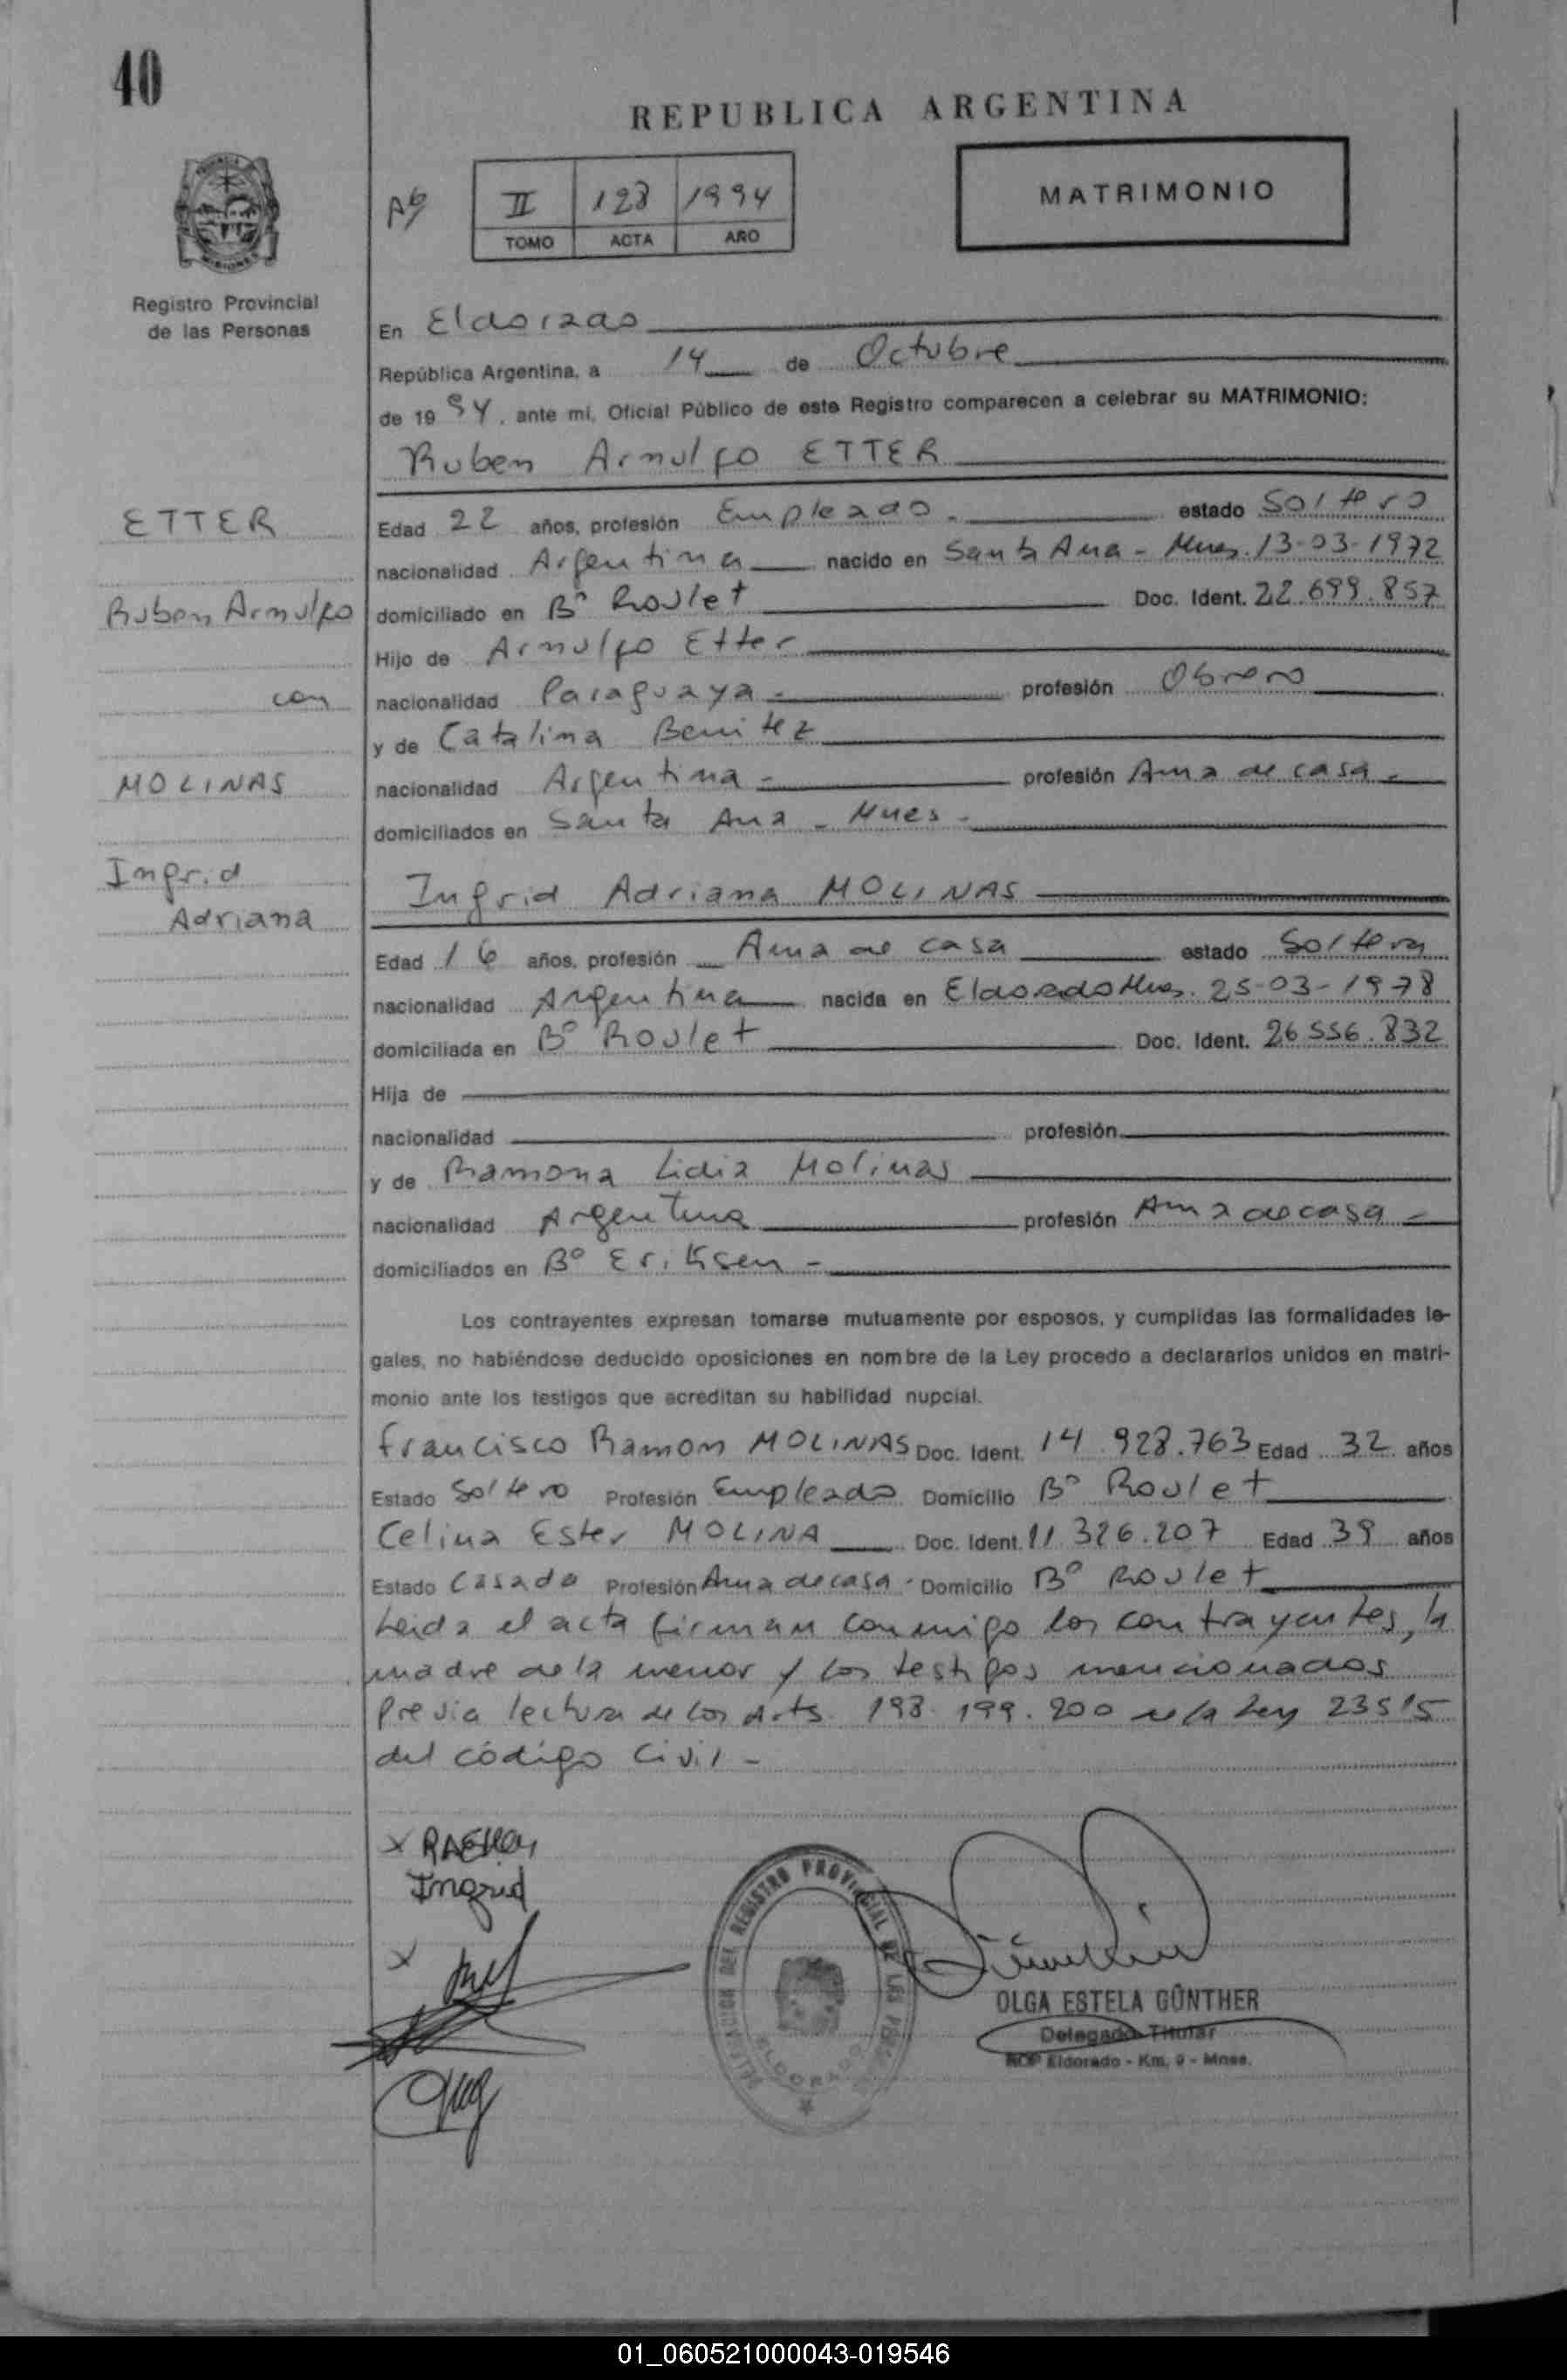 40
REPUBLICA ARGENTINA
II 128 1994
TOMO ACTA AÑO
MATRIMONIO
Registro Provincial
de las Personas
En Eldorado
República Argentina, a 14 de Octubre
de 1994, ante mí, Oficial Público de este Registro comparecen a celebrar su MATRIMONIO:
Ruben Arnulfo ETTER
ETTER
Edad 22 años, profesión Empleado estado Soltero
nacionalidad Argentina nacido en Santa Ana - Mnes. 13-03-1972
Ruben Arnulfo
domiciliado en Bº Roulet Doc. Ident. 22.699.857
Hijo de Arnulfo Etter
con
nacionalidad Paraguaya - profesión Obrero
y de Catalina Benitez
MOLINAS
nacionalidad Argentina - profesión Ama de casa -
domiciliados en Santa Ana - Mnes -
Ingrid
Adriana
Ingrid Adriana MOLINAS
Edad 16 años, profesión Ama de casa estado Soltera
nacionalidad Argentina nacida en Eldorado Mnes. 25-03-1978
domiciliada en Bº Roulet Doc. Ident. 26.556.832
Hija de
nacionalidad profesión
y de Ramona Lidia Molinas
nacionalidad Argentina profesión Ama de casa -
domiciliados en Bº Eriksen -
Los contrayentes expresan tomarse mutuamente por esposos, y cumplidas las formalidades le-
gales, no habiéndose deducido oposiciones en nombre de la Ley procedo a declararlos unidos en matri-
monio ante los testigos que acreditan su habilidad nupcial.
Francisco Ramon MOLINAS Doc. Ident. 14.928.763 Edad 32 años
Estado Soltero Profesión Empleado Domicilio Bº Roulet
Celina Ester MOLINA Doc. Ident. 11.326.207 Edad 39 años
Estado Casada Profesión Ama de casa - Domicilio Bº Roulet
Leida el acta firman conmigo los contrayentes, la
madre de la menor y los testigos mencionados
Previa lectura de los Arts. 198. 199. 200 de la Ley 23515
del código Civil -
Ingrid
DELEGACION DEL REGISTRO PROVINCIAL DE LAS
ELDORADO
OLGA ESTELA GÜNTHER
Delegado Titular
RCP Eldorado - Km. 9 - Mnes.
01_060521000043-019546